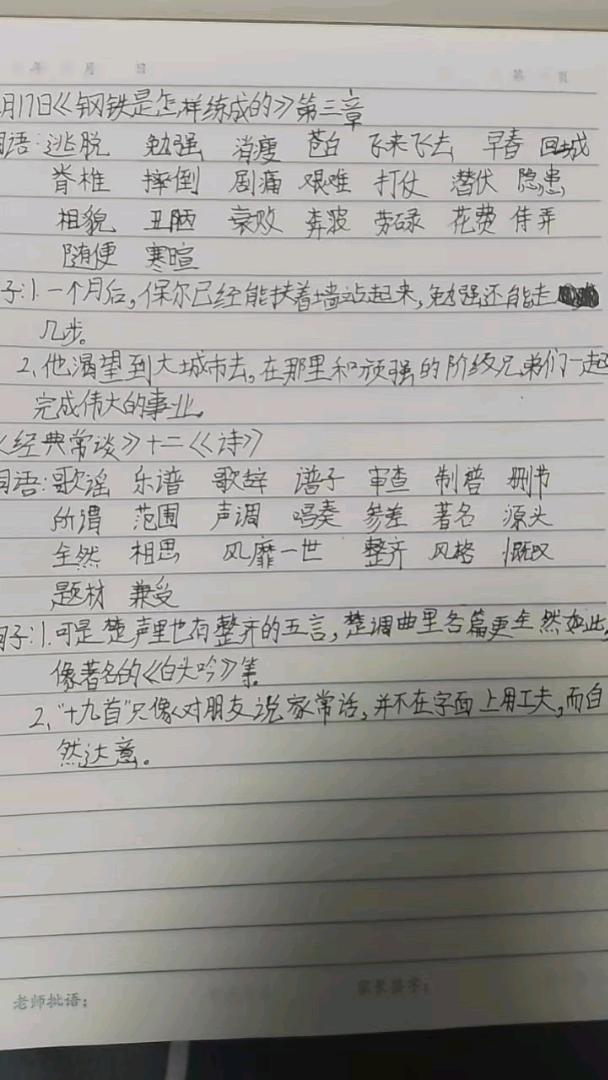 年 月 日 第 页
月17日《钢铁是怎样练成的》第三章
词语:逃脱 勉强 消瘦 苍白 飞来飞去 早春 回城
脊椎 摔倒 剧痛 艰难 打仗 潜伏 隐患
相貌 丑陋 衰败 奔波 劳碌 花费 侍弄
随便 寒暄
子:1.一个月后,保尔已经能扶着墙站起来,勉强还能走
几步。
2.他渴望到大城市去,在那里和顽强的阶级兄弟们一起
完成伟大的事业。
《经典常谈》十二《诗》
词语:歌谣 乐谱 歌辞 谱子 审查 制谱 删节
所谓 范围 声调 唱奏 参差 著名 源头
全然 相思 风靡一世 整齐 风格 慨叹
题材 兼受
句子:1.可是楚声里也有整齐的五言,楚调曲里各篇更全然如此,
像著名的《白头吟》等
2.“十九首”只像对朋友说家常话,并不在字面上用工夫,而自
然达意。
老师批语: 家长签字: